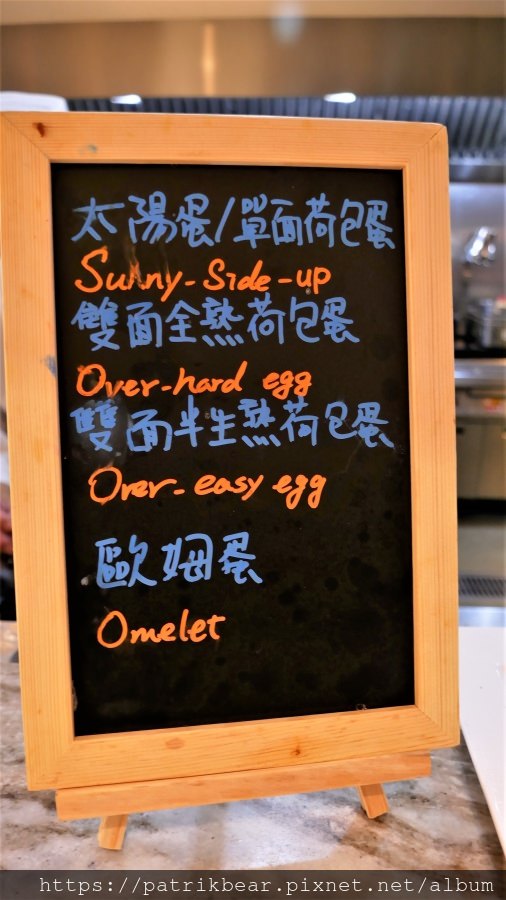 太陽蛋/單面荷包蛋
Sunny-Side-up
雙面全熟荷包蛋
Over-hard egg
雙面半生熟荷包蛋
Over-easy egg
歐姆蛋
Omelet
https://patrikbear.pixnet.net/album